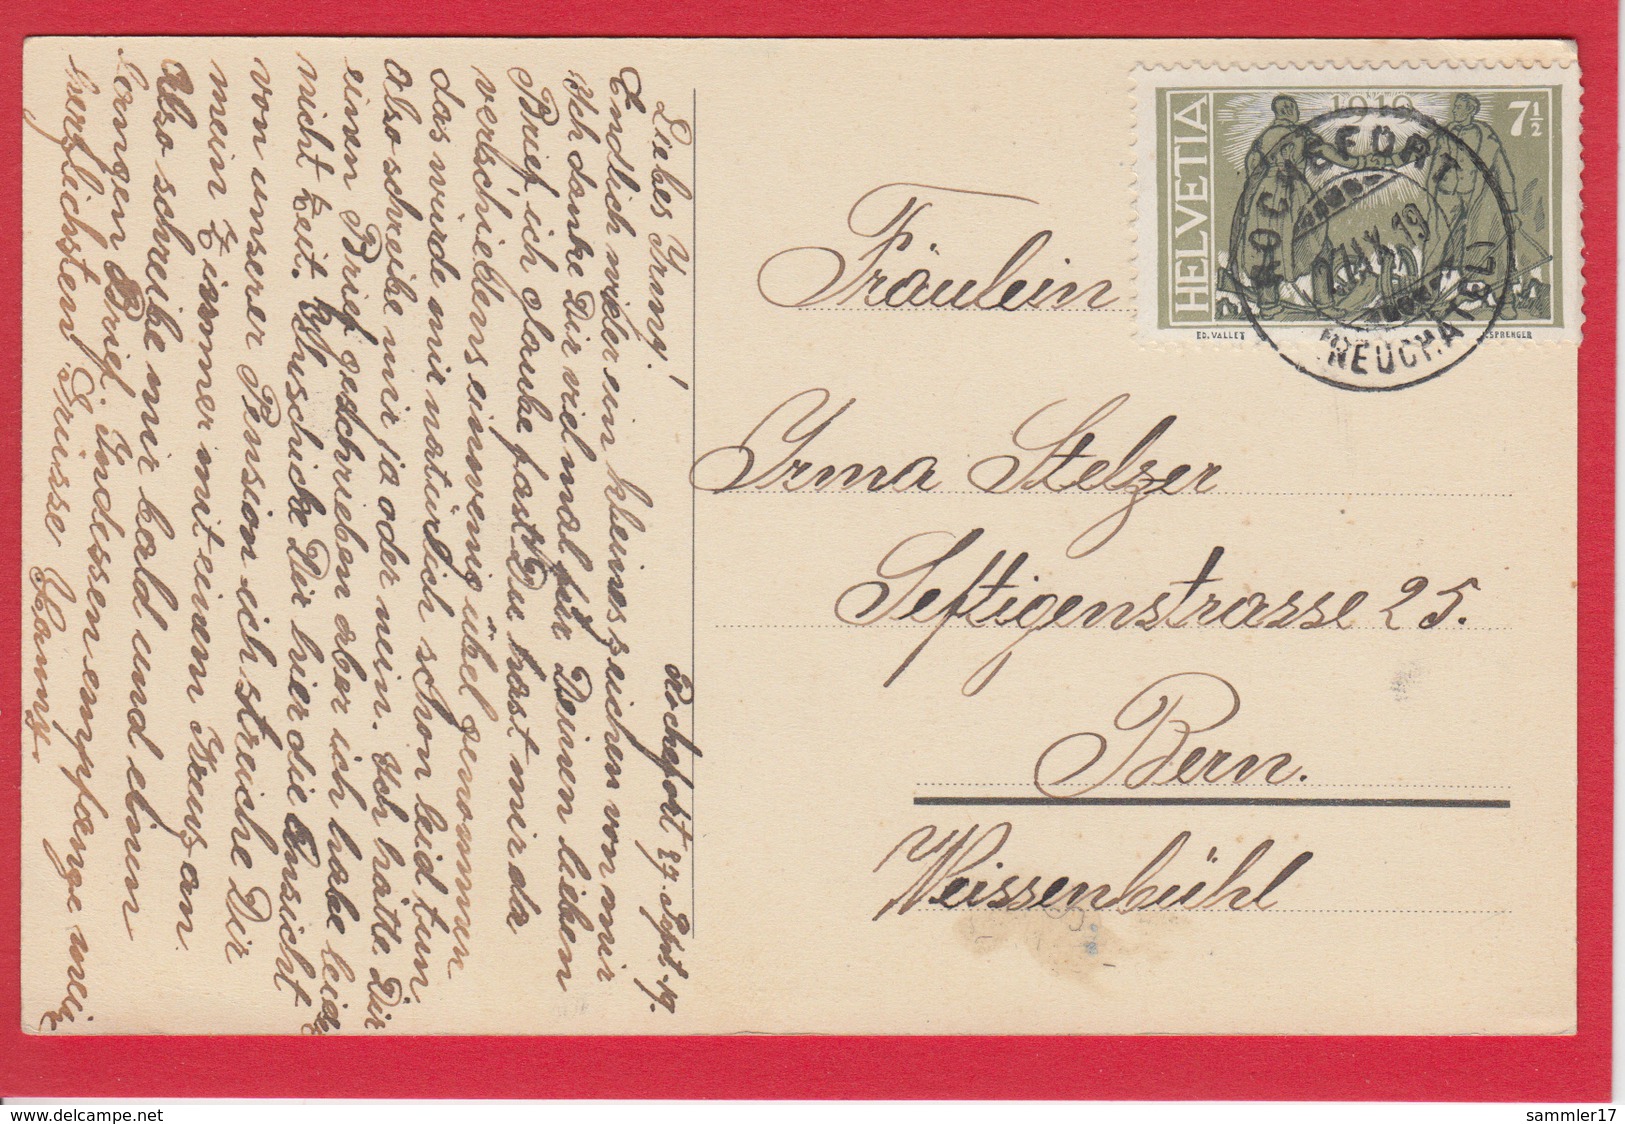 Rochefort 27. Sept. 19.
Liebes Yrmy!
Endlich wieder ein kleines Zeichen von mir
Ich danke Dir viel mal für Deinen lieben
Brief ich glaube fast Du hast mir da
verschiedens einwenig übel genommen
das würde mir natürlich schon leid tun
also schreibe mir ja oder nein. Ich hätte Dir
einen Brief geschrieben aber ich habe leider
nicht Zeit. Ich schicke Dir hier die Ansicht
von unserer Pension ich streiche Dir
mein Zimmer mit einem Kreuz an
Also schreibe mir bald und einen
langen Brief. Indessen empfange meine
herzlichsten Grüsse Hans.
Fräulein
Yrma Stelzer
Seftigenstrasse 25.
Bern.
Weissenbühl
HELVETIA
1919
7½
ED. VALLET
SPRENGER
ROCHEFORT
27.IX.19
(NEUCHÂTEL)
www.delcampe.net
sammler17